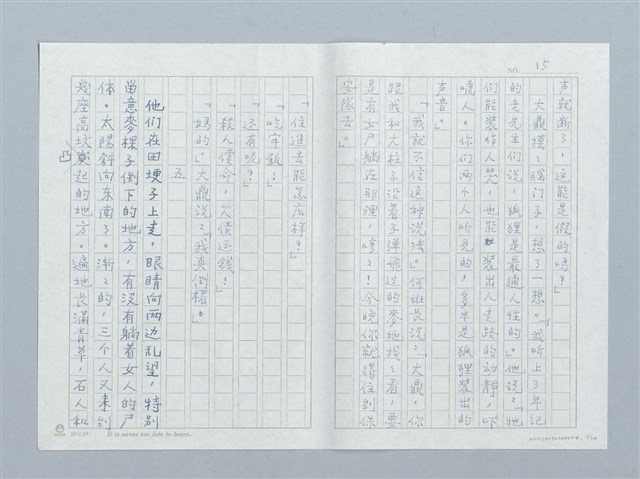 NO. 15
声就断了，这能是假的吗？」
大鼎摸々脑门子，想了一想。「我听上了年记
的老先生们说，狐狸是最通人性的。」他说：「牠
们能装作人哭，也能装出人走路的动静，吓
唬人。你们两个人听见的，多半是狐狸装出的
声音。」
「我就不信这种说法。」何班长说：「大鼎，你
跟我和大柱子沿着子弹飛过的麥地找々看，要
是有女尸躺在那裡，哼々！今晚你就得住到保
安隊去。」
「住進去能怎麽樣？」
「吃牢飯！」
「还有呢？」
「殺人償命，欠債还錢！」
「媽的，」大鼎说：「我真倒楣。」
五
他们在田埂子上走，眼睛向两边乱望，特别
留意麥棵子倒下的地方，有没有躺着女人的尸
体。太陽斜向东南了。漸々的，三个人又来到
幾座高坟凸起的地方。遍地长滿青草，石人和
It is never too late to learn.